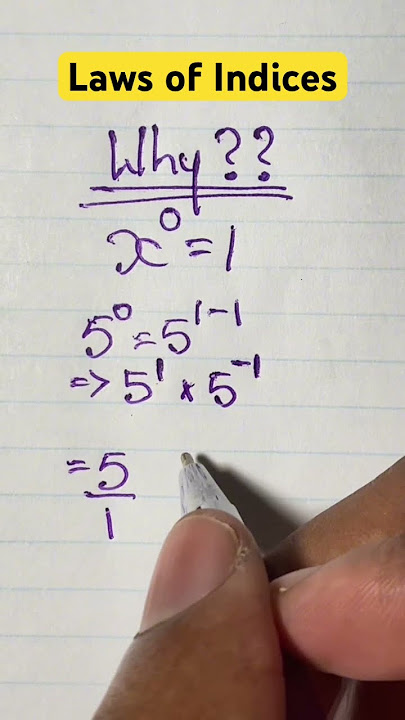 Laws of Indices
Why??
x⁰=1
5⁰=5¹⁻¹
=> 5¹ × 5⁻¹
= 5/1